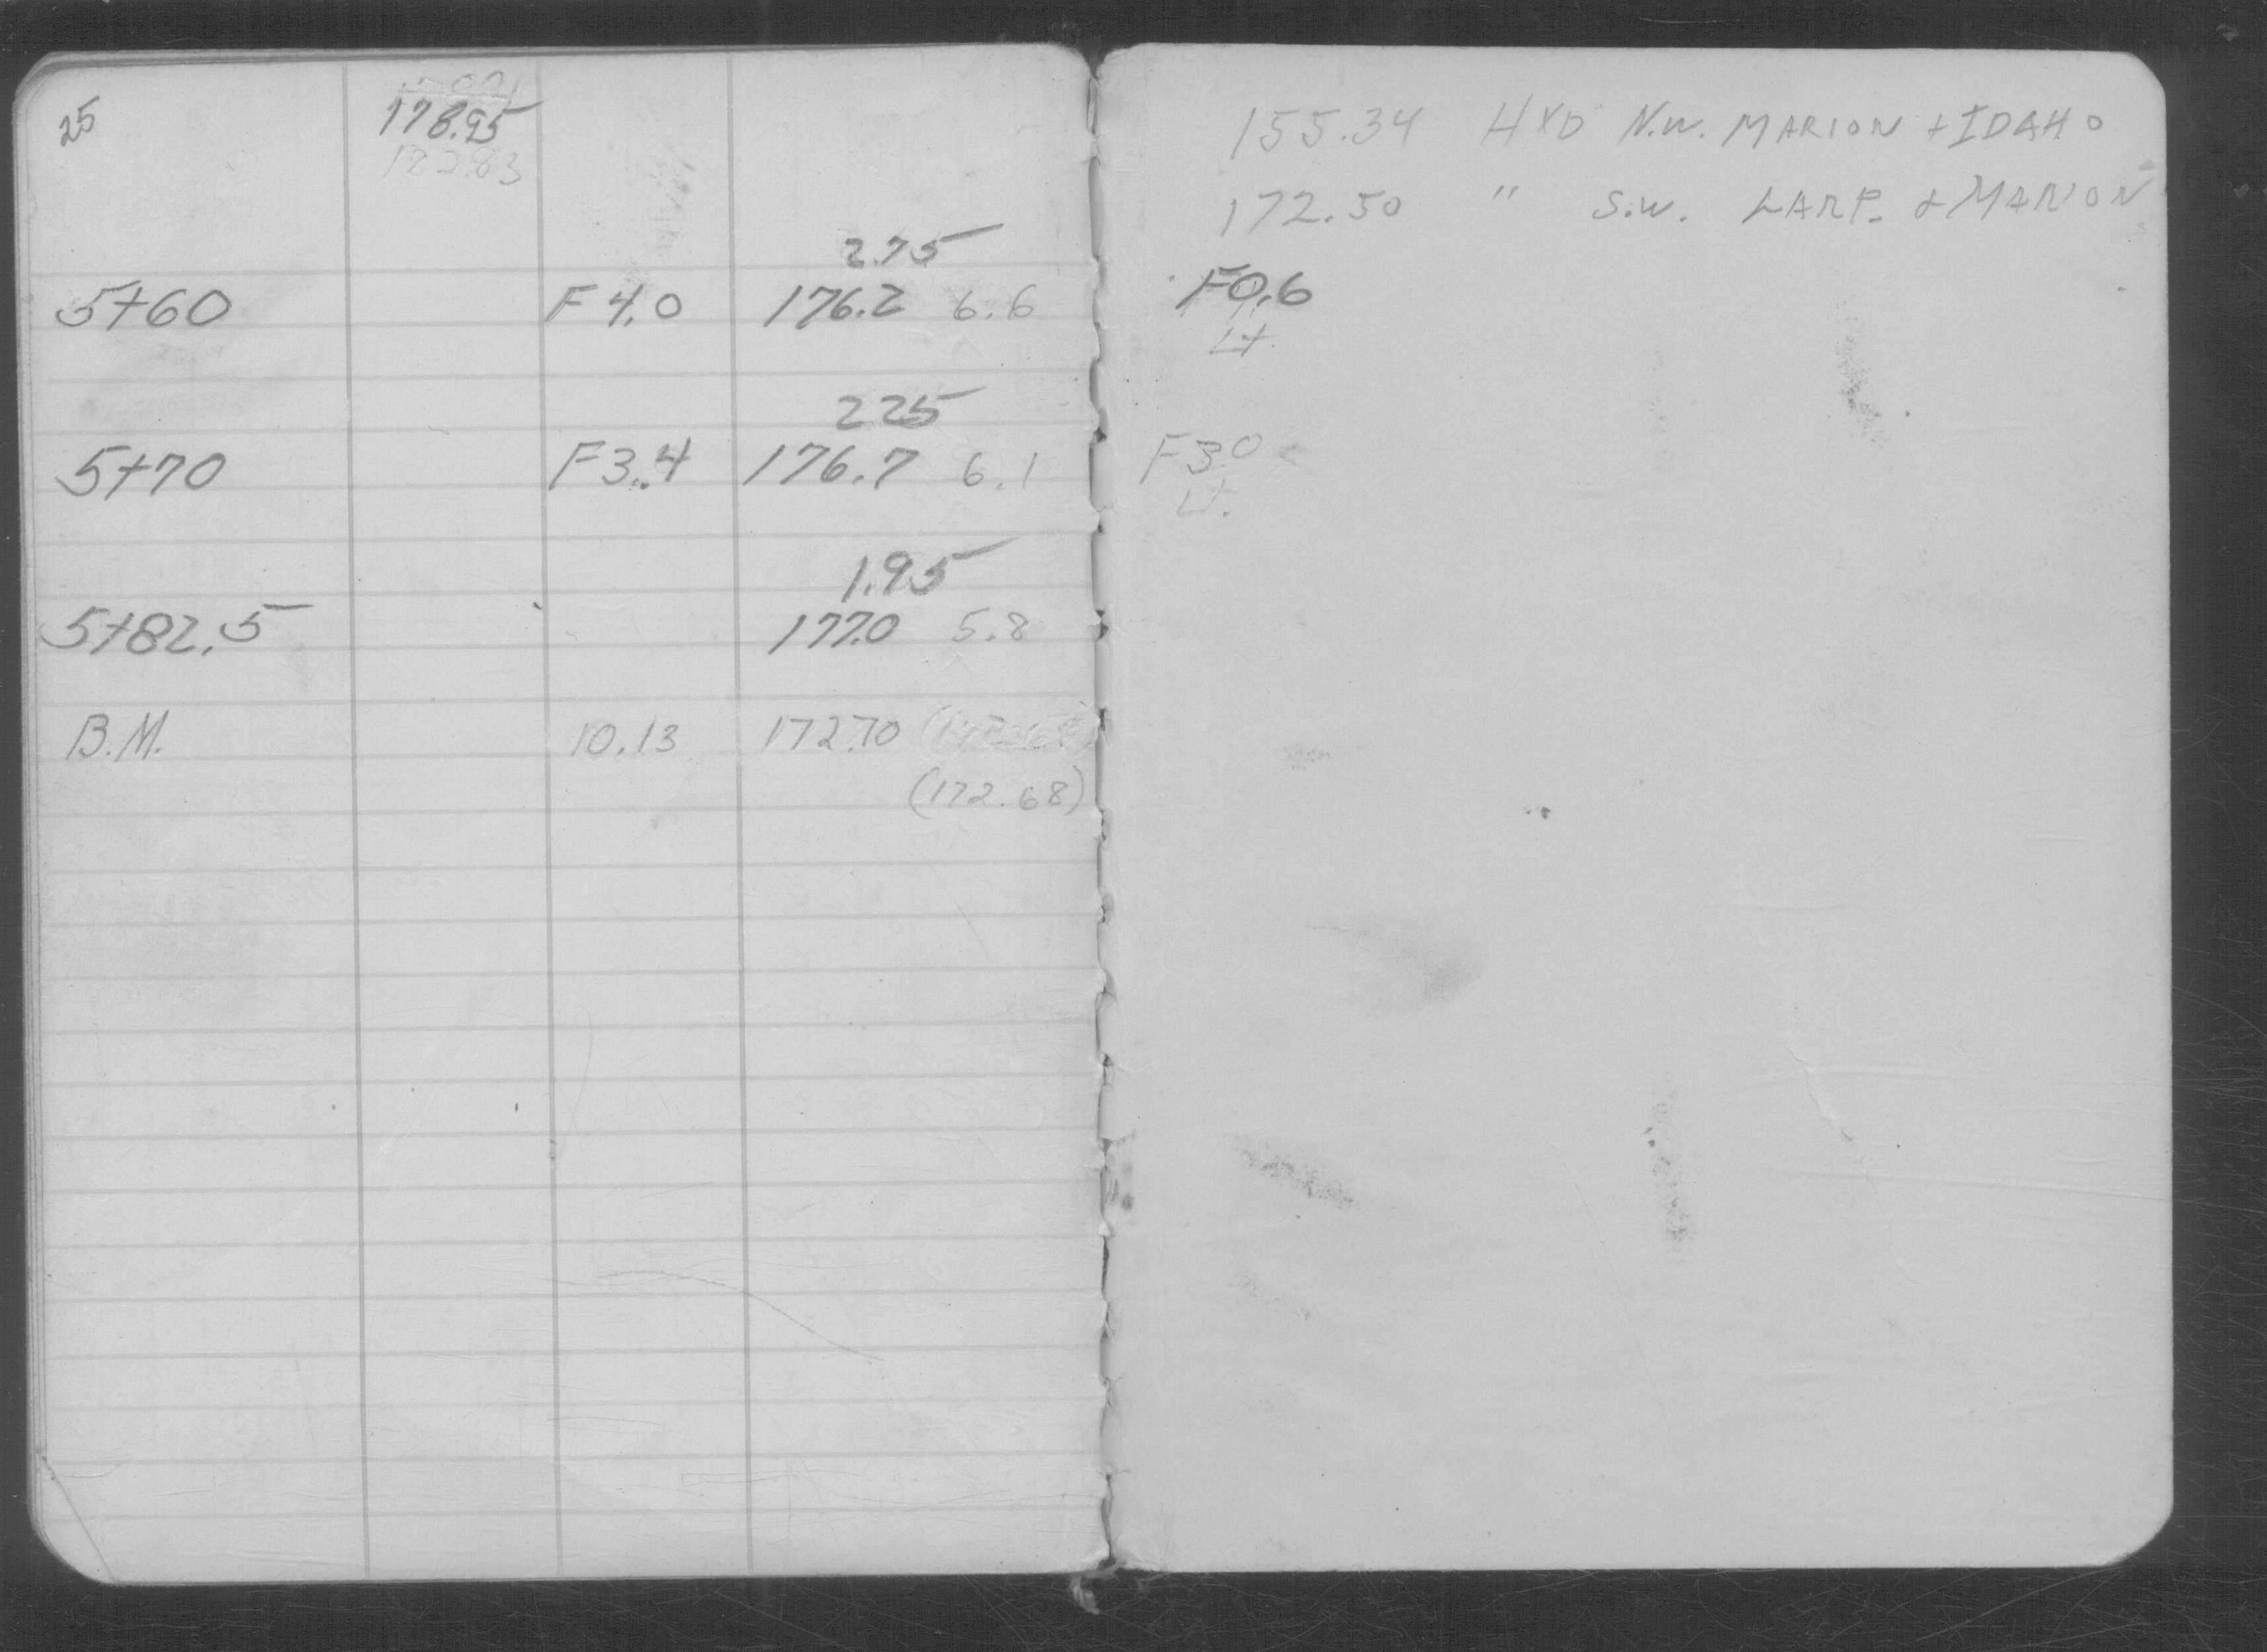 25
178.95
182.83
2.75
5+60 F 4.0 176.2 6.6
2 25
5+70 F 3.4 176.7 6.1
1.95
5+82.5 177.0 5.8
B.M. 10.13 172.70
(172.68)
155.34 HYD N.W. MARION + IDAHO
172.50 " S.W. LARP. & MARION
F0.6
Lt.
F3.0
Lt.